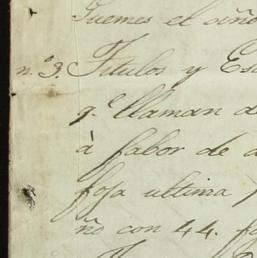 Guemes el año
n.º 3. Titulos y Es
q.e llaman d
à fabor de d
foja ultima
ño con 44. fo